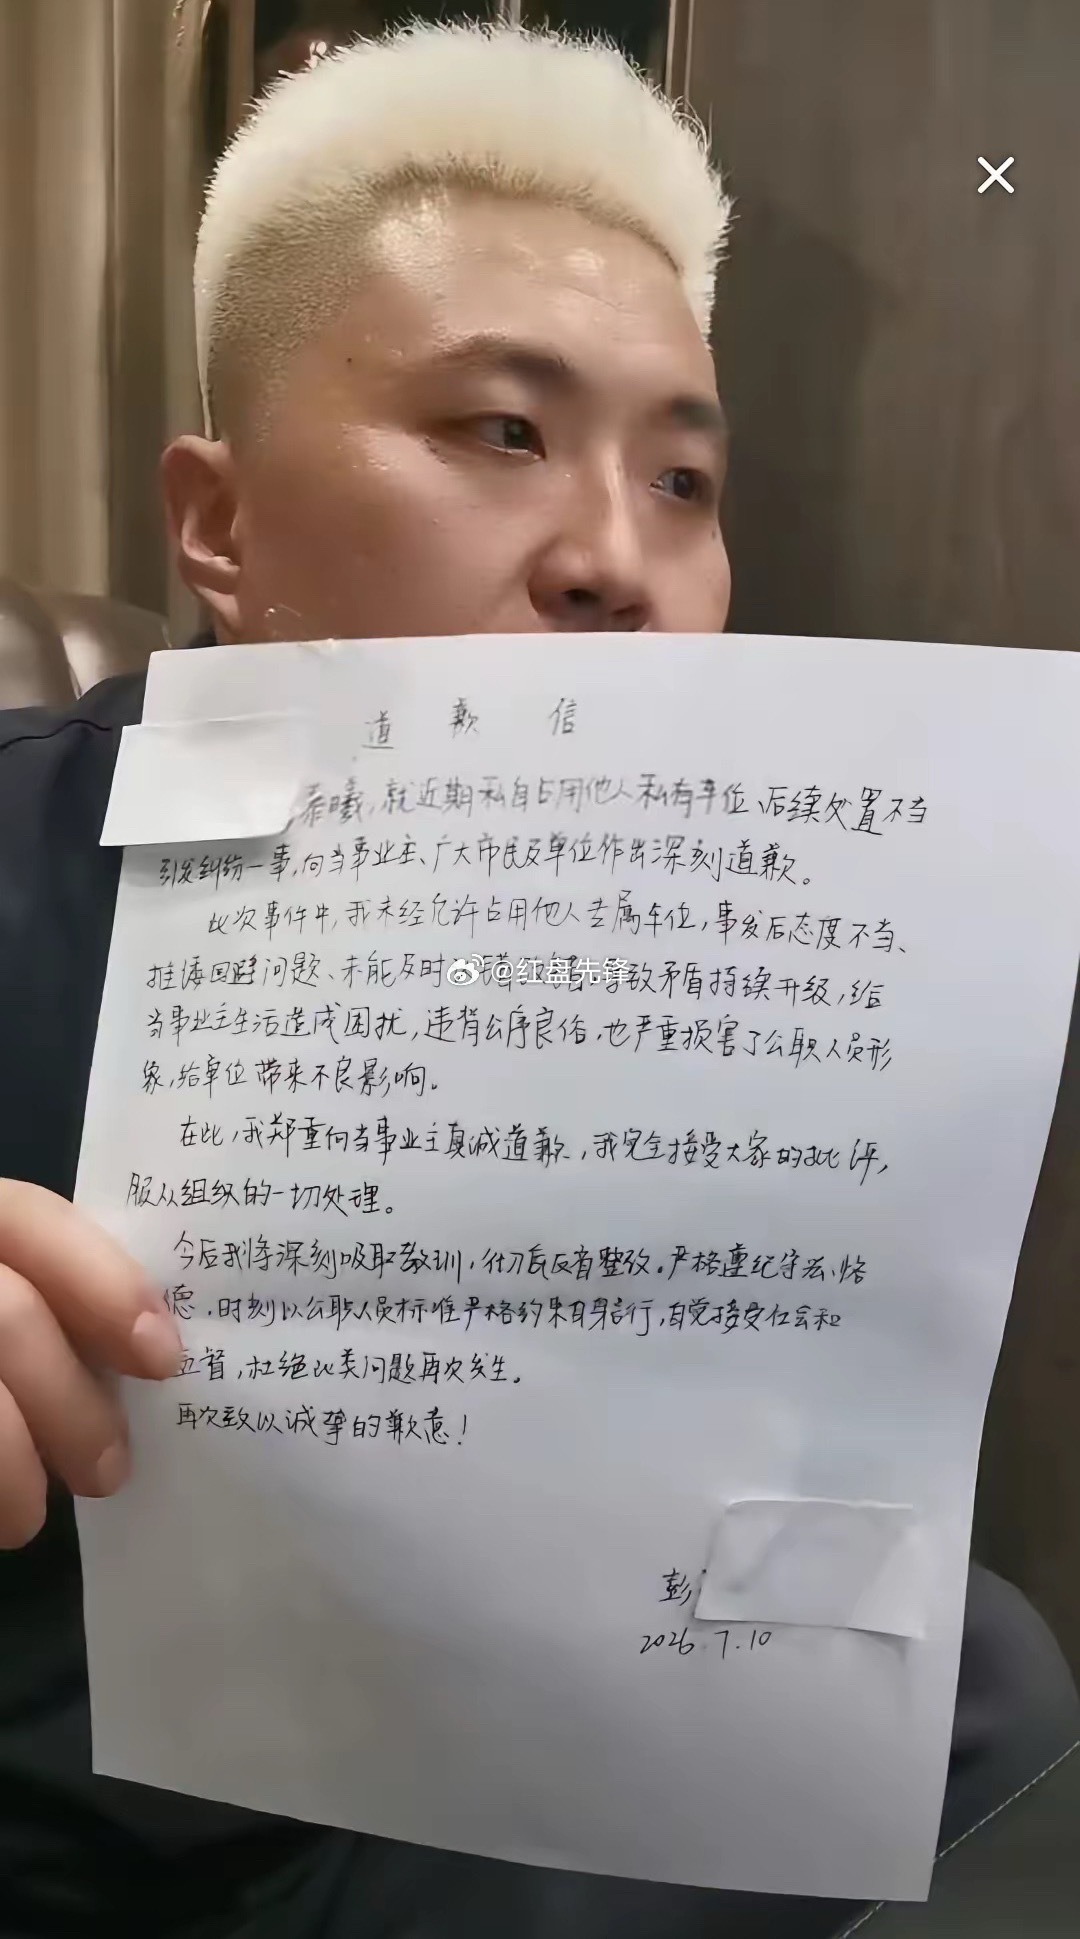 道歉信
泰曦，就近期私自占用他人私有车位、后续处置不当
引发纠纷一事，向当事业主、广大市民及单位作出深刻道歉。
此次事件中，我未经允许占用他人专属车位，事发后态度不当、
推诿回避问题、未能及时 导致矛盾持续升级，给
@红盘先锋
当事业主生活造成困扰，违背公序良俗，也严重损害了公职人员形
象，给单位带来不良影响。
在此，我郑重向当事业主真诚道歉，我完全接受大家的批评，
服从组织的一切处理。
今后我将深刻吸取教训，彻底反省整改。严格遵纪守法、恪
德，时刻以公职人员标准严格约束自身言行，自觉接受社会和
监督，杜绝此类问题再次发生。
再次致以诚挚的歉意！
彭
2026.7.10